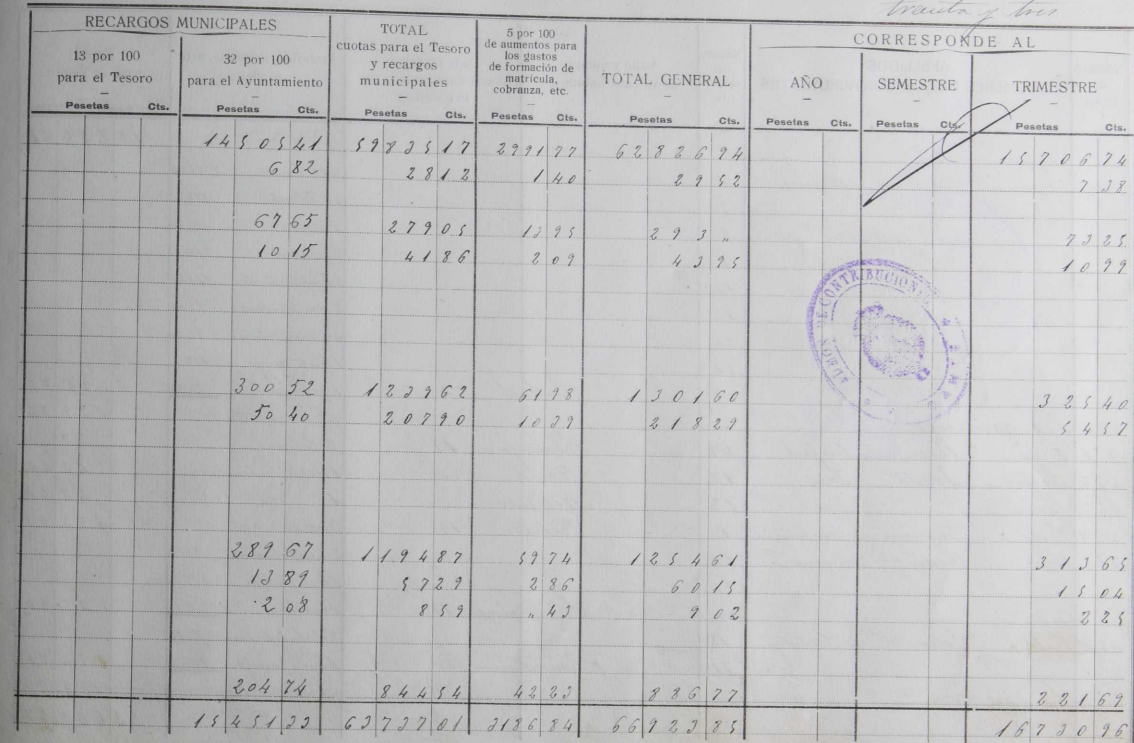 treinta y tres
RECARGOS MUNICIPALES
13 por 100
para el Tesoro
Pesetas Cts.
32 por 100
para el Ayuntamiento
Pesetas Cts.
TOTAL
cuotas para el Tesoro
y recargos
municipales
Pesetas Cts.
5 por 100
de aumentos para
los gastos
de formación de
matrícula,
cobranza, etc.
Pesetas Cts.
TOTAL GENERAL
Pesetas Cts.
CORRESPONDE AL
AÑO
Pesetas Cts.
SEMESTRE
Pesetas Cts.
TRIMESTRE
Pesetas Cts.
14505 41 59835 17 2991 77 62826 94 15706 74
6 82 28 12 1 40 29 52 7 38
67 65 279 05 13 95 293 „ 73 25
10 15 41 86 2 09 43 95 10 99
300 52 1239 62 61 98 1301 60 325 40
50 40 207 90 10 39 218 29 54 57
289 67 1194 87 59 74 1254 61 313 65
13 89 57 29 2 86 60 15 15 04
2 08 8 59 „ 43 9 02 2 25
204 74 844 54 42 23 886 77 221 69
15451 33 63737 01 3186 84 66923 85 16730 96
DE CONTRIBUCIONES